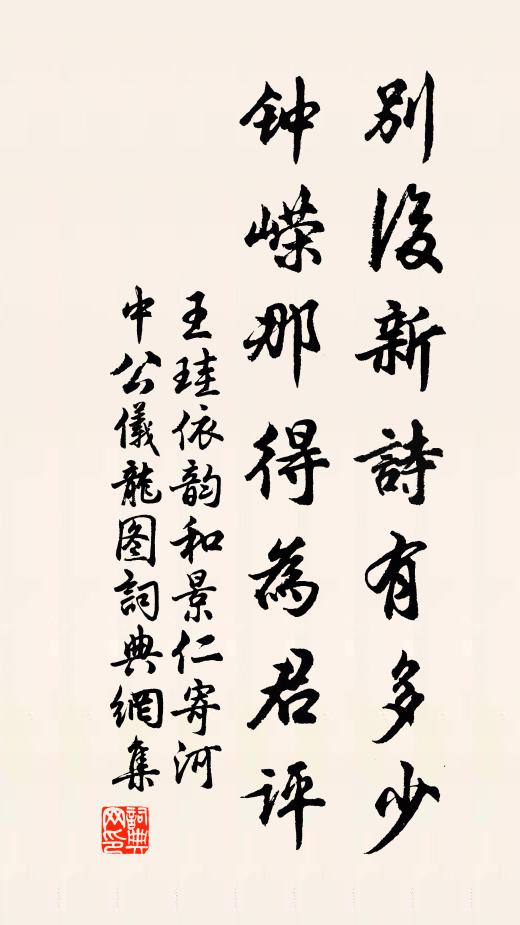 别後新詩有多少
钟嵘那得為君评
王珪依韵和景仁寄河
中公儀龍图詞典網集
詞典
网印